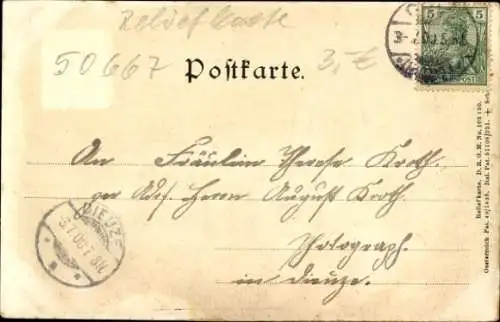 Reliefkarte
50667
3,-€
Postkarte.
5 5
An Fräulein Therese Kroth.
per Adr. Herrn August Kroth.
Photograph.
in Dieuze.
DIEUZE
3.7.00
Reliefkarte. D. R. G. M. No.
Oesterreich Pat.